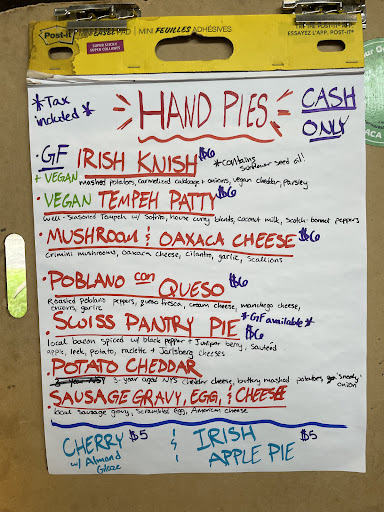 Post-it
SUPER STICKY
SUPER COLLANT
MINI FEUILLES ADHÉSIVES
TRY THE POST-IT® APP.
ESSAYEZ L'APP. POST-IT®
*Tax included*
HAND PIES
CASH ONLY
• GF IRISH KNISH $6 *contains sunflower seed oil!
+ VEGAN mashed potatoes, caramelized cabbage + onions, vegan cheddar, parsley
• VEGAN TEMPEH PATTY $6
Well-Seasoned Tempeh w/ Sofrito, house curry blends, coconut milk, scotch bonnet peppers
• MUSHROOM & OAXACA CHEESE $6
Crimini mushrooms, Oaxaca cheese, cilantro, garlic, scallions
• POBLANO con QUESO $6
Roasted poblano peppers, queso fresca, cream cheese, manchego cheese,
onions, garlic
• SWISS PANTRY PIE $6 *GF available*
local bacon spiced w/ black pepper + Juniper berry, sautéed
apple, leek, potato, raclette + Jarlsberg cheeses
• POTATO CHEDDAR
3-year aged NYS cheddar cheese, buttery mashed potatoes, "sneaky" onion
• SAUSAGE GRAVY, EGG, & CHEESE
local sausage gravy, scrambled egg, American cheese
CHERRY $5 & IRISH $5
w/ Almond APPLE PIE
Glaze